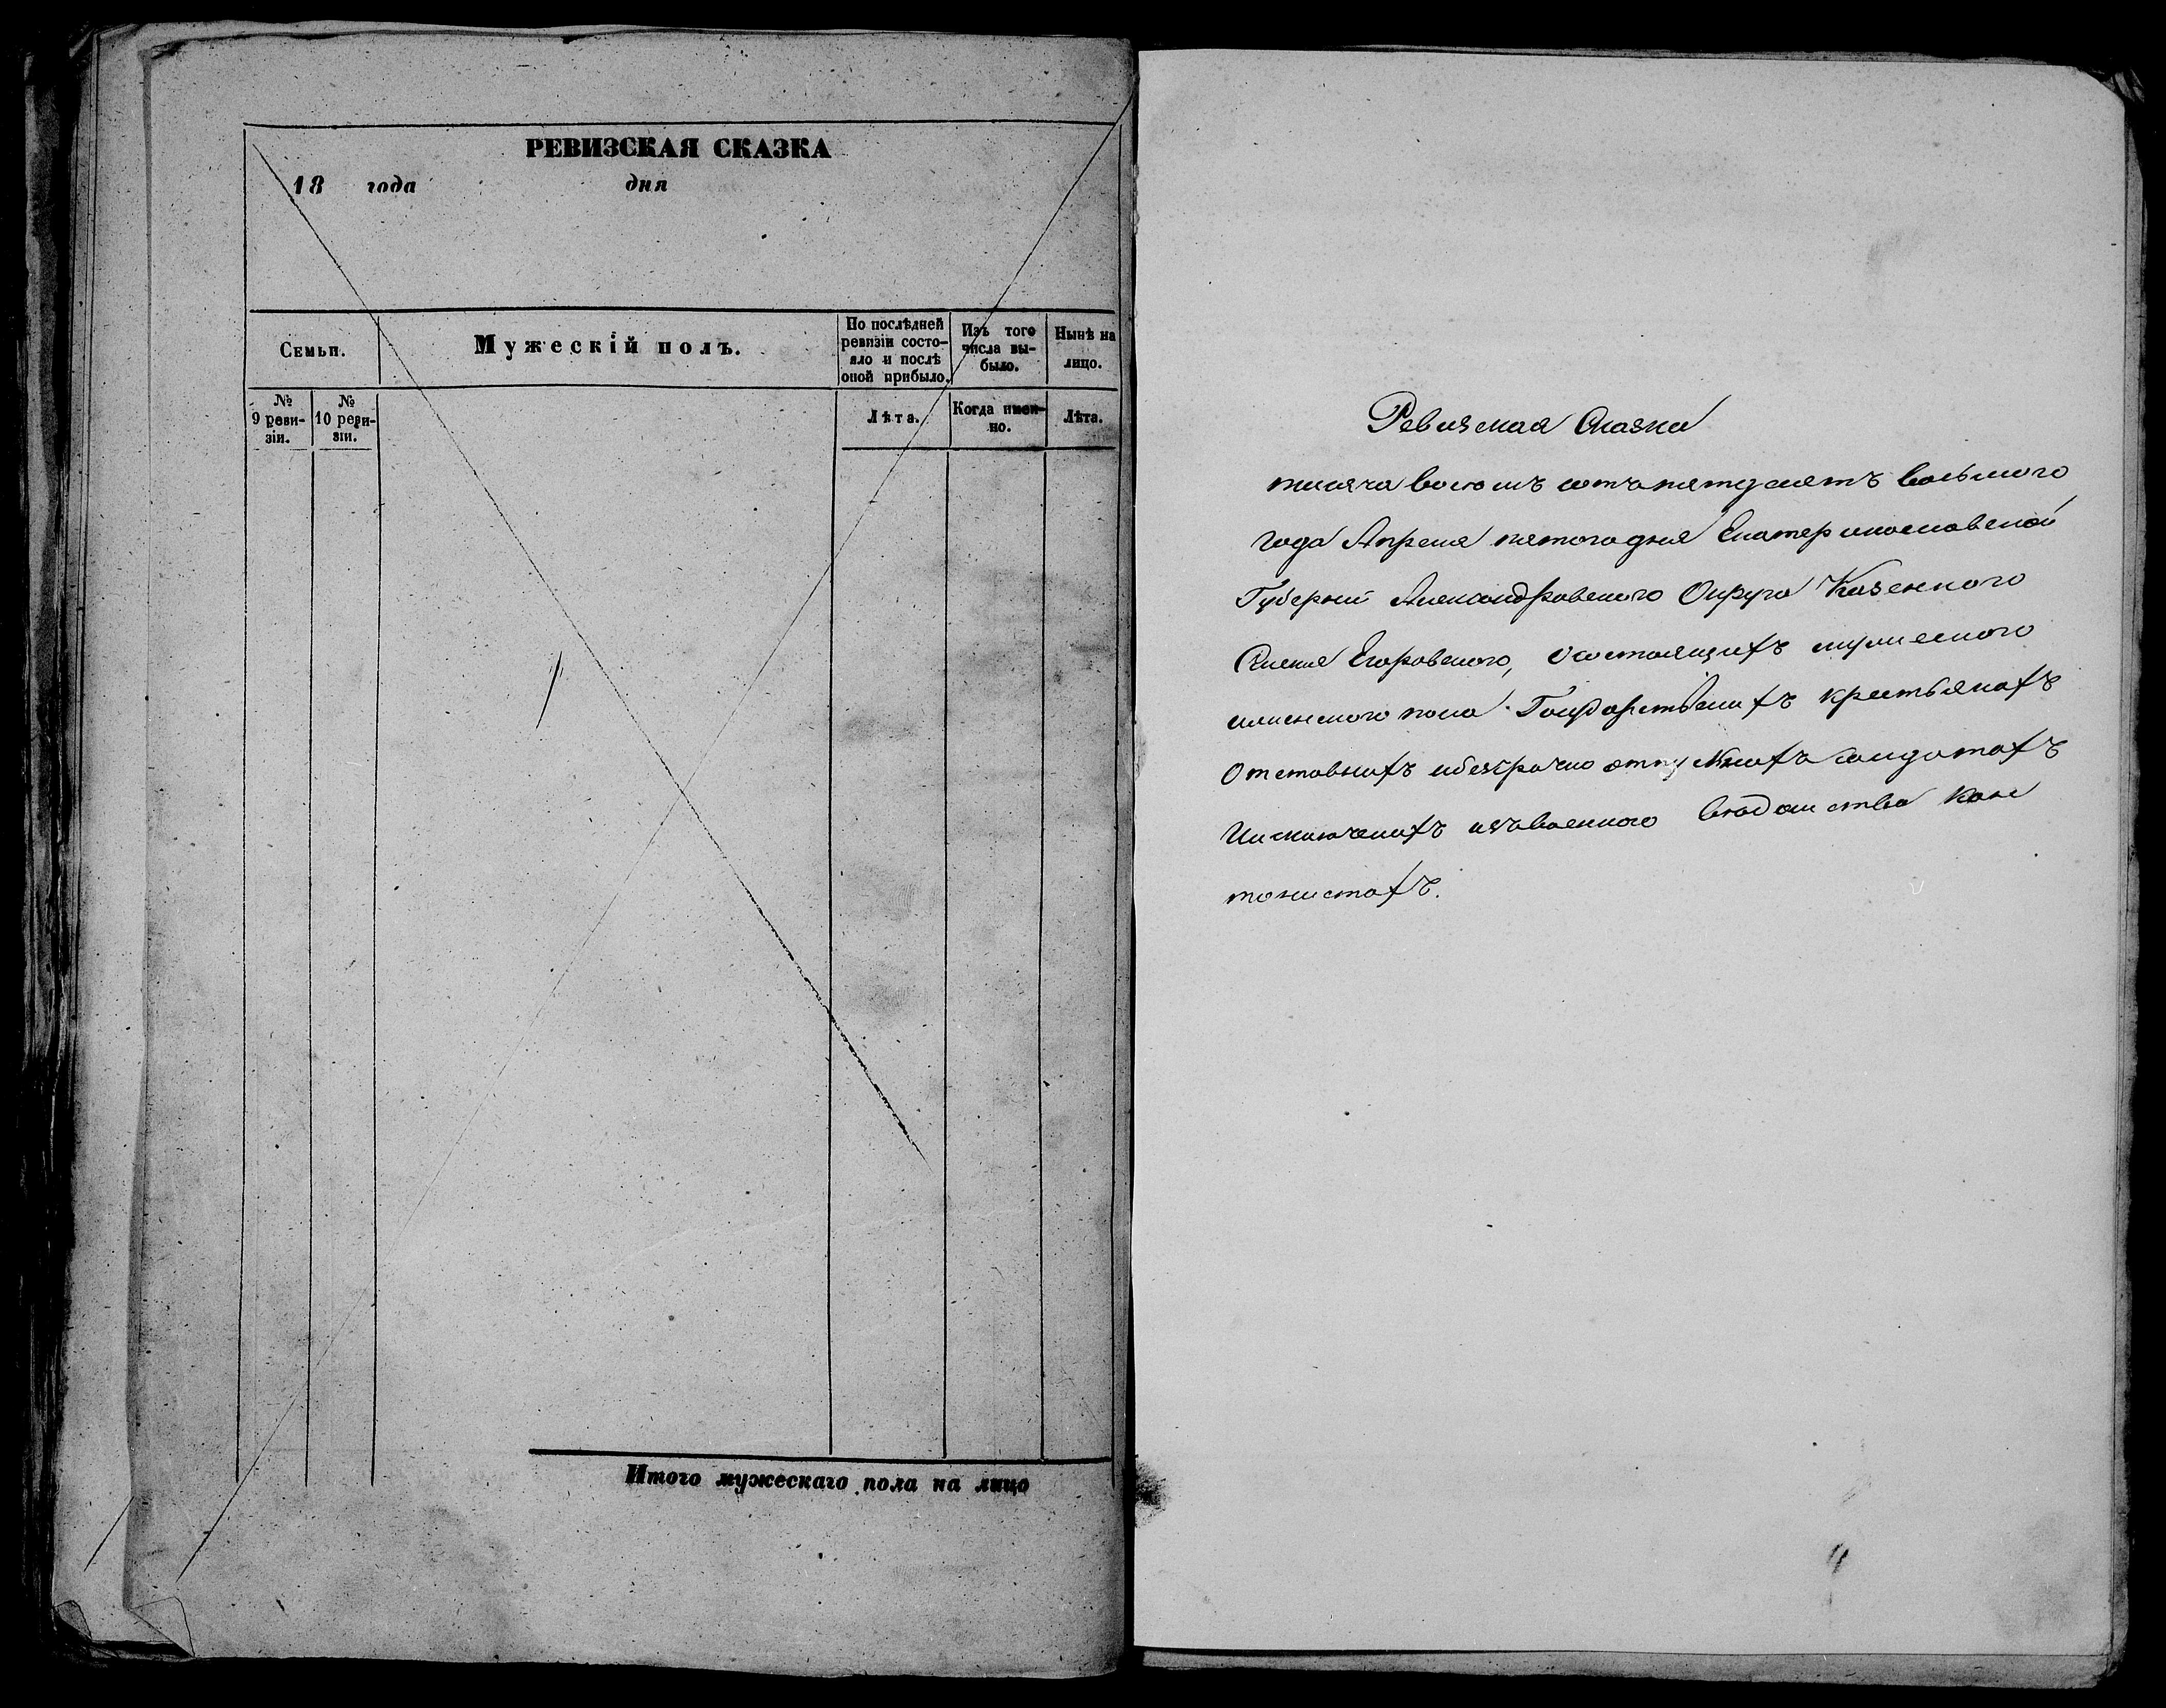 РЕВИЗСКАЯ СКАЗКА
18 года дня
Семьи.
Мужескій полъ.
По послѣдней
ревизіи состо-
яло и послѣ
оной прибыло.
Изъ того
числа вы-
было.
Нынѣ на
лицо.
№
9 реви-
зіи.
№
10 реви-
зіи.
Лѣта.
Когда имен-
но.
Лѣта.
Итого мужескаго пола на лицо
Ревизская Сказка
тысяча восемь сотъ пятдесятъ восьмого
года Апреля пятого дня Екатеринославской
Губерніи Александровского Округа Казенного
Селения Егоровского, Состоящихъ мужеского
иженского пола Государственихъ крестьянахъ
Отставнихъ ибезсрочно отпускнихъ Солдатахъ
Иисключенихъ изъвоенного вѣдомства Кан
тонистахъ.